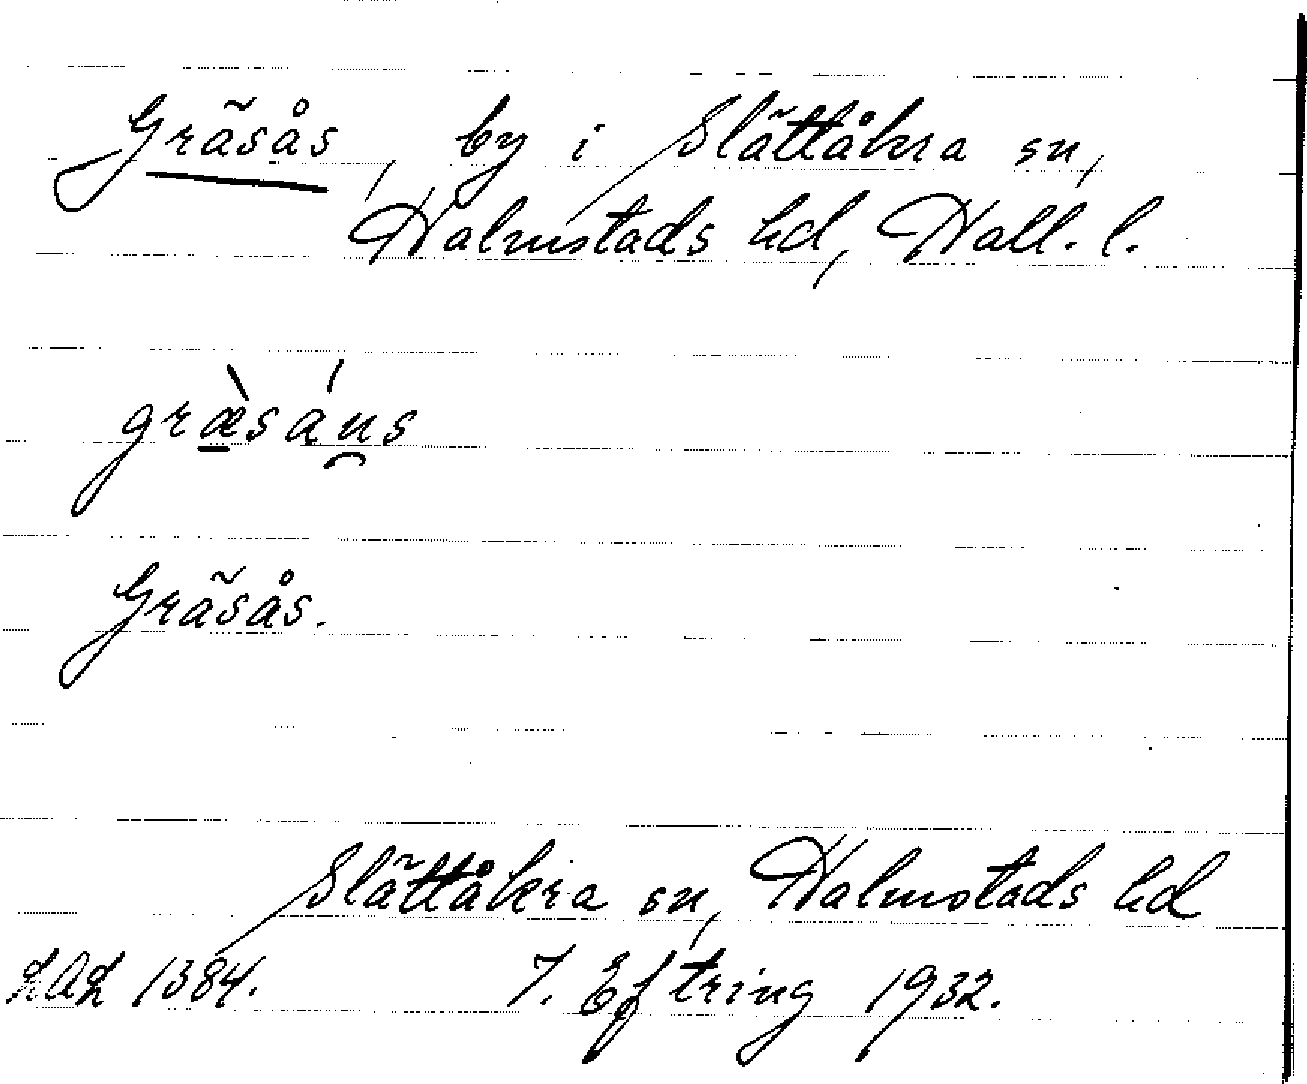 Gräsås, by i Slättåkra sn,
Halmstads hd, Hall. l.
græ̀sáu̯s
Gräsås.
Slättåkra sn, Halmstads hd
LAL 1384. F. Eftring 1932.